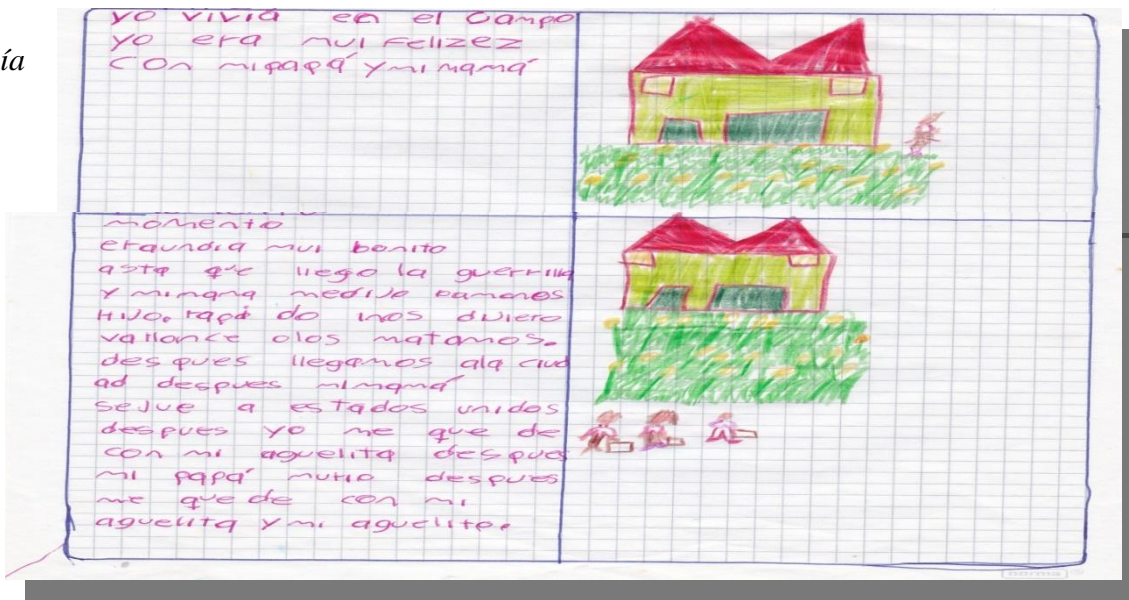 ía
yo vivia en el campo
yo era mui Felizez
con mi papá y mi mamá
momento
eraundia mui bonito
asta que llego la guerrilla
y mi mama medijo bamonos
HiJo. papá do nos dijiero
vallance olos matamos.
despues llegamos ala ciud
ad despues mi mamá
seJue a estados unidos
despues yo me que de
con mi aguelita despues
mi papá murio despues
me que de con mi
aguelita y mi aguelito.
norma